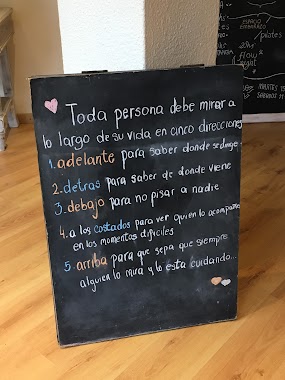 Toda persona debe mirar a
lo largo de su vida en cinco direcciones
1. adelante para saber donde se dirige
2. detras para saber de donde viene
3. debajo para no pisar a nadie
4. a los costados para ver quien lo acompaña
en los momentos dificiles
5 arriba para que sepa que siempre
alguien lo mira y lo esta cuidando...
pilates
flow